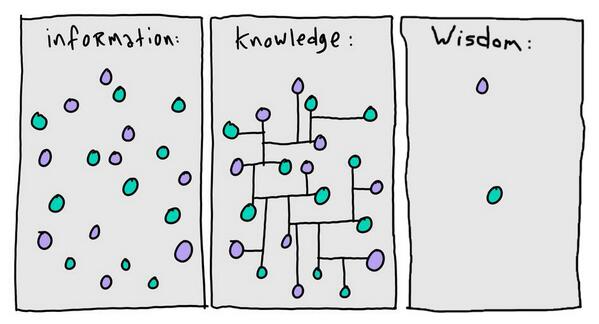 information:
Knowledge:
Wisdom: